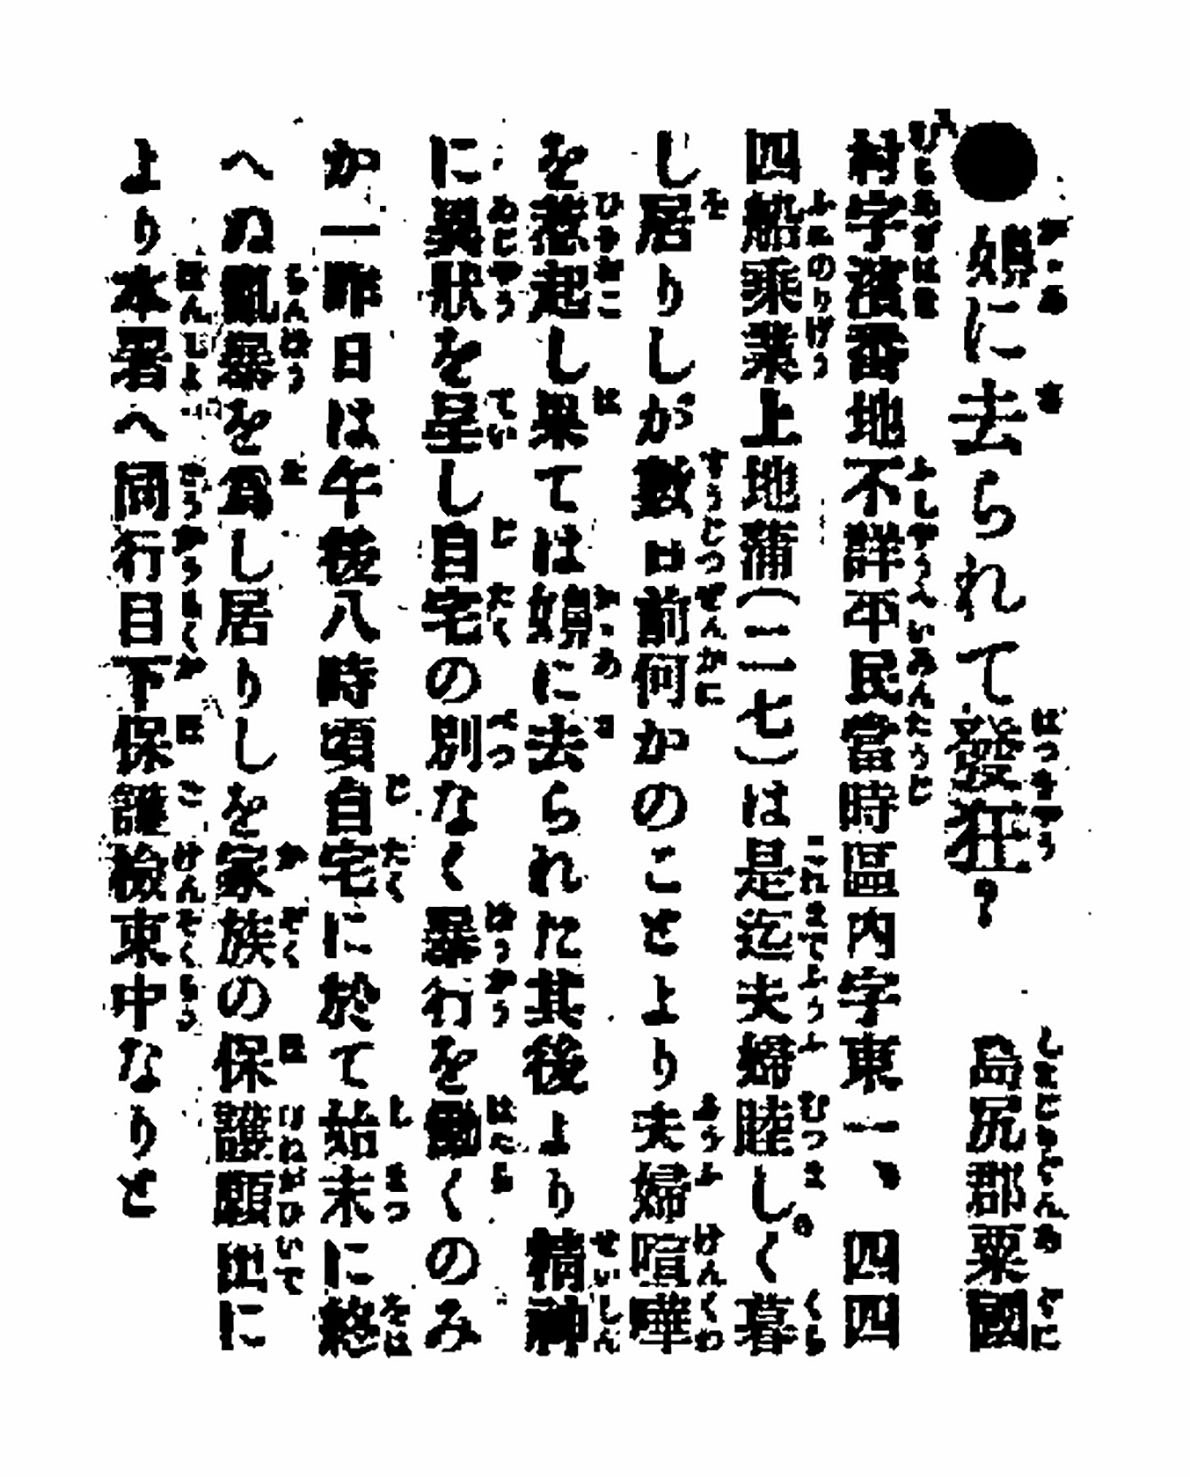 ●嬶に去られて發狂? 島尻郡粟國
村字濱番地不詳平民當時區内字東一、四四
四船乘業上地蒲(二七)は是迄夫婦睦しく暮
し居りしが數日前何かのことより夫婦喧嘩
を惹起し果ては嬶に去られた其後より精神
に異狀を呈し自宅の別なく暴行を働くのみ
か一昨日は午後八時頃自宅に於て始末に終
へぬ亂暴を爲し居りしを家族の保護願出に
より本署へ同行目下保護檢束中なりと